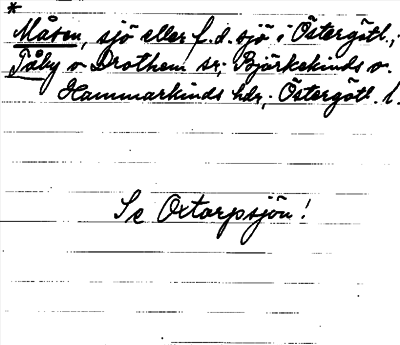 *
Måsen, sjö eller f.d. sjö i Östergötl.;
Tåby o. Drothem sr; Björkekinds o.
Hammarkinds hdr; Östergötl. l.
Se Oxtorpsjön!